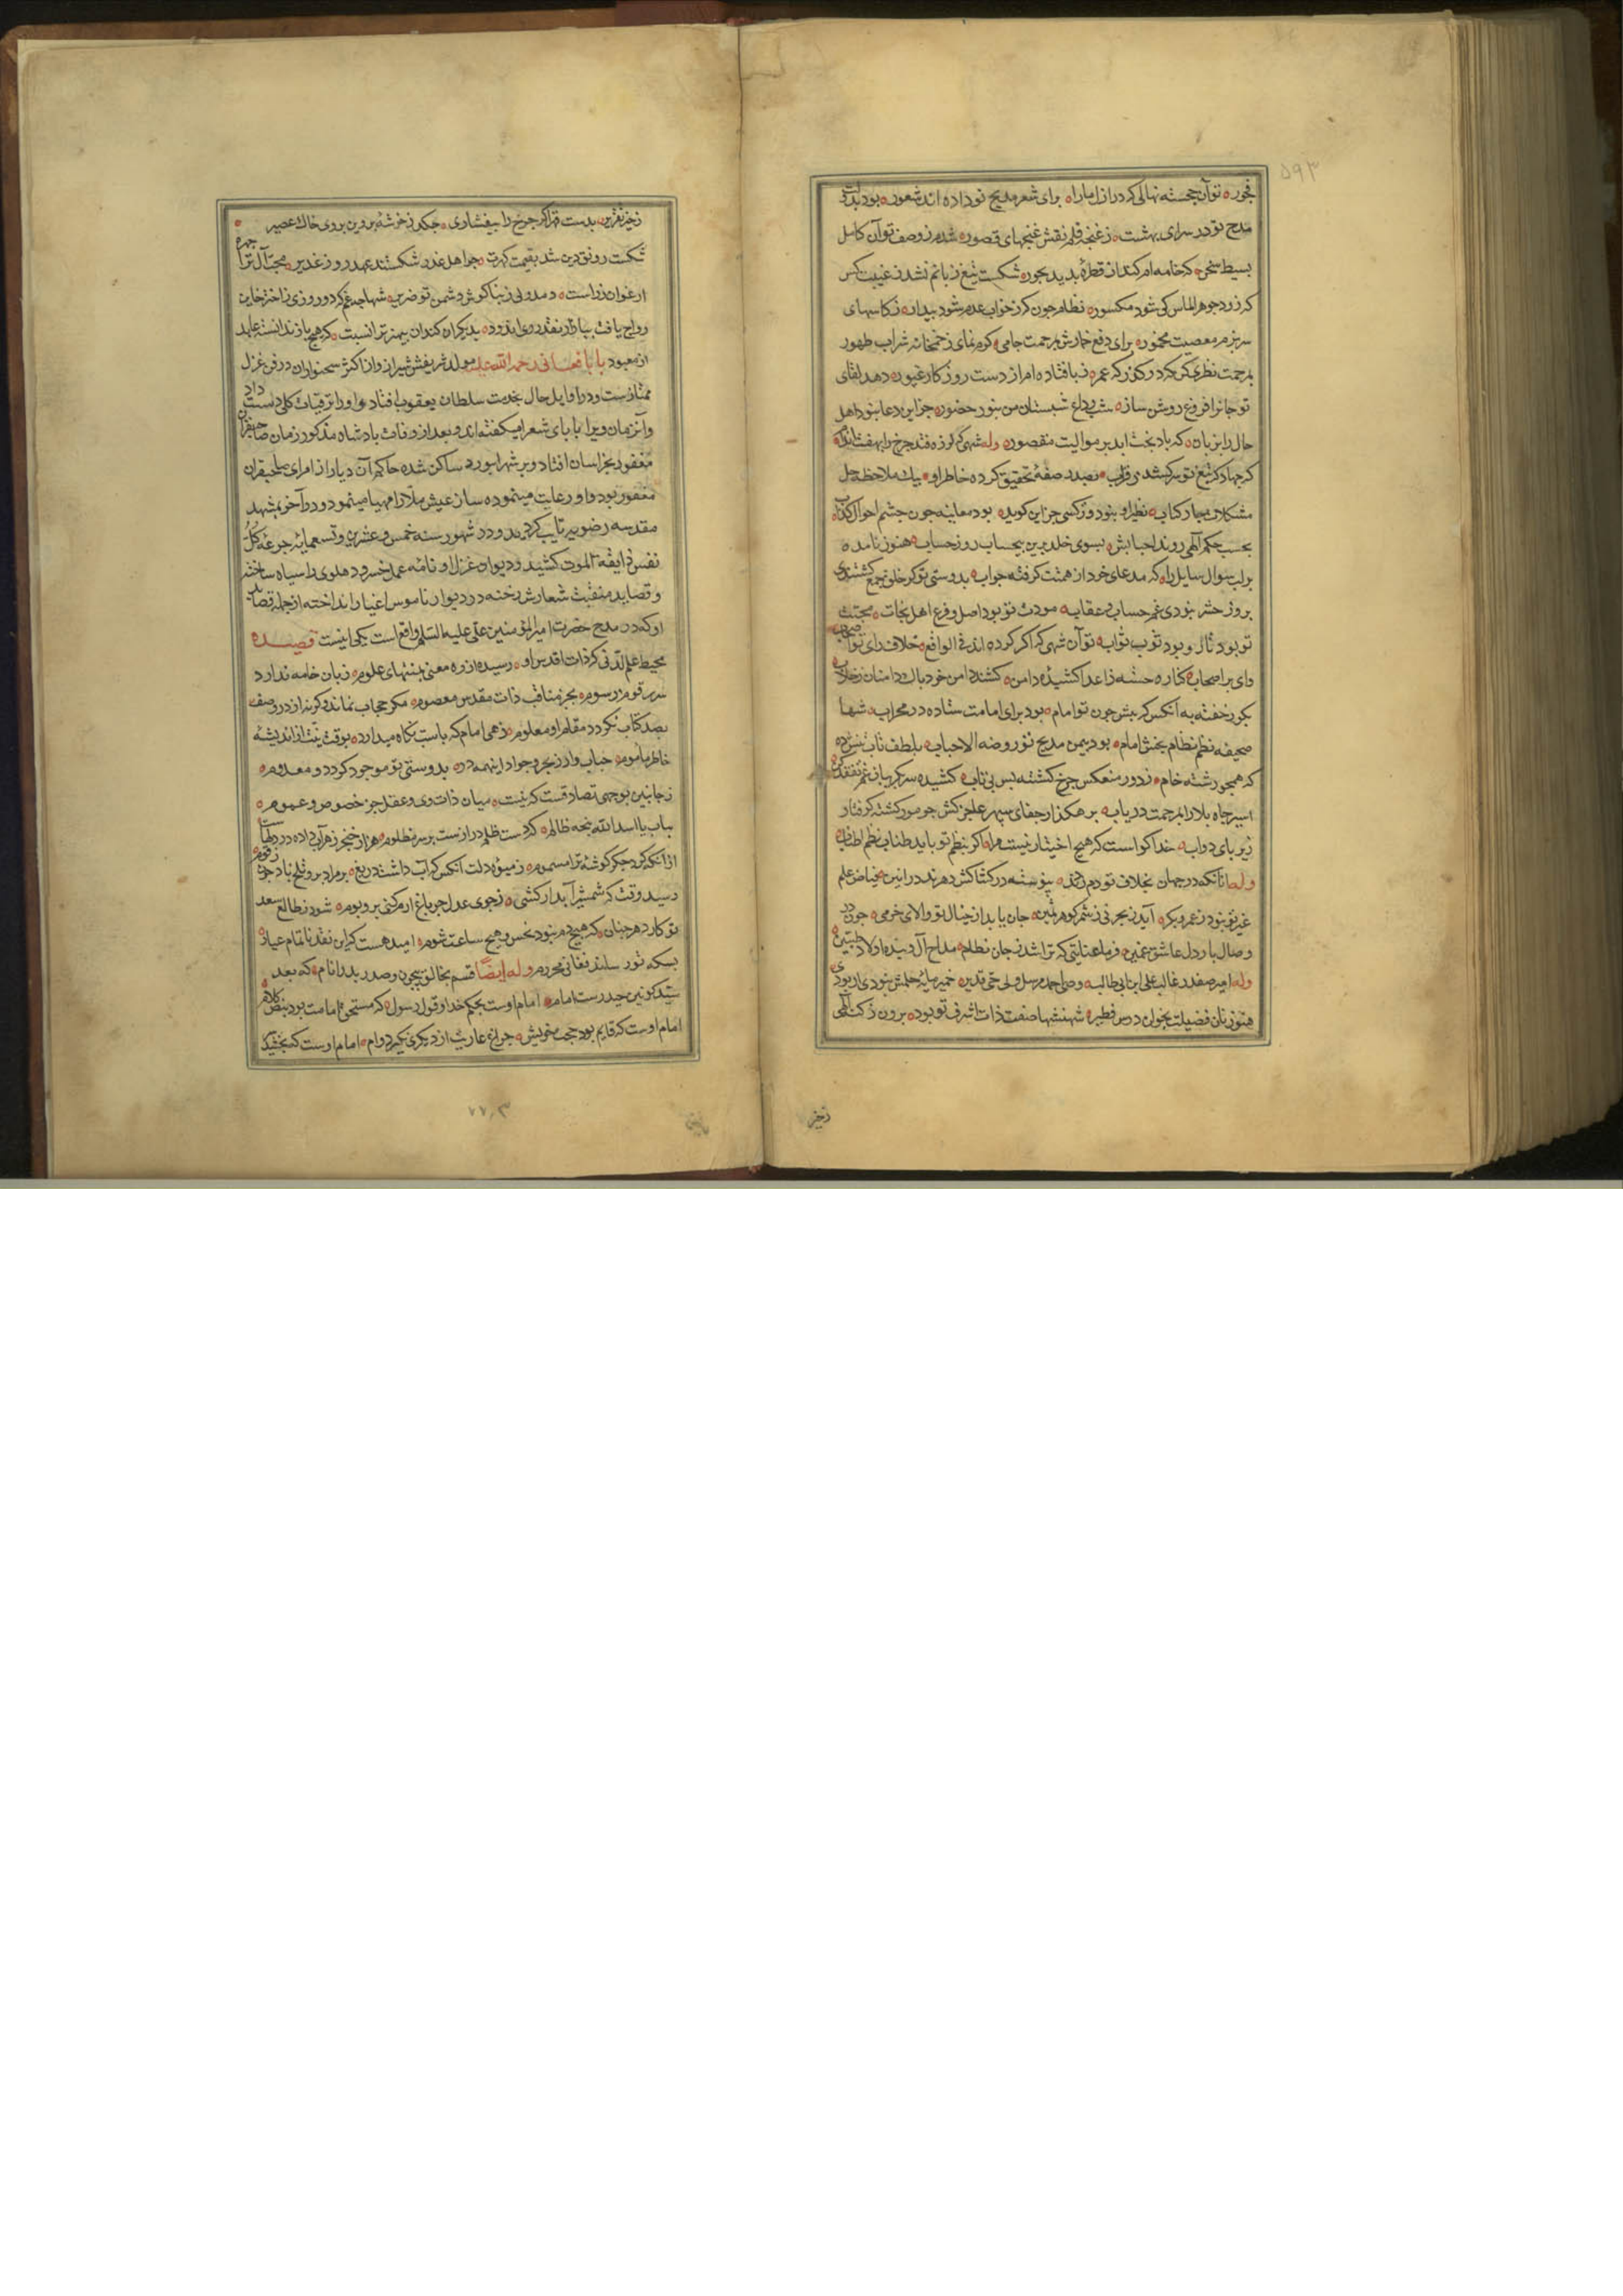 ۵۹۳
فجور توآن خجسته نهالی که در ازل ما را برای شعر مدیح تو داده اند شعور بود بدولت
مدح تو در سرای بهشت ز غنچه قلم نقش غنچهای قصور شدم ز وصف توآن کامل
بسیط سخن که خامه ام کند از قطره بدید بحور شکست تیغ زبانم نشد ز غیبت کس
که زرد جوهر الماس کی شود مکسور نظام چون که ز خواب عدم شود بیدار ز کاسهای
سر بزم معصیت مخمور برای دفع خمارش مرحمت جامی کرم نمای ز خمخانه شراب طهور
بمرحمت نظری کن که عمر ز پا فتاده ام از دست روزکار غیور دهد لقای
تو جانرا فروغ روشن ساز شب وداع شبستان من بنور حضور جز این دعا بنود اهل
حال را بزبان که باد بخت ابد بر موالیت مقصور وله شهی که لرزه فتد چرخ را
که جهاد که تیغ تو سر کشد ز قراب بصدر صفه تحقیق کرده خاطر او بیک ملاحظه حل
مشکلات چهار کتاب نظیر او بنود ور کسی جز این کوید بود معاینه چون چشم احوال کذاب
بحسب حکم الهی روند احبابش بسوی خلد برین بیحساب روز حساب هنوز نامده
بر لب سوال سایل را که مدعای خود از همتت کرفته جواب بدوستی تو کر خلق جمع کشتندی
بروز حشر بنودی غم حساب و عقاب مودت تو بود اصل و فرع اهل نجات محبت
تو بود نال و بود توب تواب توآن شهی که اکر کرده اند فی الواقع خلاف رای تو اصحاب
وای بر اصحاب کناره جسته ز اعدا کشیده دامن کشند دامن خود بال و دامنان ز خلاب
بکور خفته به آنکس که پیش چون تو امام بود برای امامت ستاده در محراب شها
صحیفه نظم نظام بخش امام بود بیمن مدیح تو روضه الاحباب بلطف تاب
که همچو رشته خام ز دور منعکس چرخ کشته بس بی تاب کشیده سر
اسیر چاه بلا را بمرحمت دریاب برهکذار جفای سپهر عاجز کش چو مور کشته کرفتار
زیر پای دواب خدا کواست که هیچ اختیار نیست مرا اکر بنظم تو باید طناب نظم اطناب
وله تا آنکه در جهان بخلاف تو دم پیوسته در کشاکش دهرند در انین فیاض علم
غیر تو بنود ز عمر و بکر آید ز بحر نی ز شمر کوهر ثمین جان یابد از خیال تو والای خرمی چون در
وصال یار دل عاشق غمین فرما عنایتی که ترا شد ز جان نظام مداح آل و بنده اولاد طیبین
وله امیر صفدر غالب علی ابن ابی طالب وصی احمد مرسل ولی حی قدیر خمیر مایه حلمش بنودی ار بودی
هنوز نان فضیلت بخوان دوس فطیر شهنشها صفت ذات اشرف تو بود برون ز کنه الهی
زخیر
زخیر تقریر بدست قهر اکر چرخ را بیفشاری چکد ز خوشه پروین بروی خاک عصیر
شکست رونق دین شد بقیمت کهرت چو اهل غدر شکستند عهد روز غدیر محبت آل ترا چهره
ارغوان زر است و مدولی ز تپا کوش دشمن تو ضریر شها چه غم که دو روزی ز اختر خاین
رواج یافت ببازار نقد روی اندود بدیکران کند ان بیهنر ترا نسبت که هیچ باز ندانسته عابد
از معبود بابا فغانی رحمه الله علیه مولد شریفش شیراز و از اکثر سخنوران در فن غزل
ممتازست و در اوایل حال بخدمت سلطان یعقوب افتاد و او را ترقیات کلی دست داد
و آنزمان ویرا بابای شعرا میکفته اند و بعد از وفات بادشاه مذکور زمان صاحبقران
مغفور بخراسان افتاد و بر شهر ابیورد ساکن شده حاکم آن دیار از امرای صاحبقران
مغفور بود و او رعایت مینموده ساز عیش ملا را مهیا مینمود و در آخر بمشهد
مقدسه رضویه تایب کردید و در شهور سنه خمس و عشرین و تسعمایه جرعه کل
نفس ذایقة الموت کشید و دیوان غزل او نامه عمل خسرو دهلوی را سیاه ساخته
و قصاید منقبت شعارش رخنه در دیوار ناموس اغیار انداخته از جمله قصاید
او که در مدح حضرت امیر المؤمنین علی علیه السلم واقع است یکی اینست قصیــده
محیط علم لدنی که ذات اقدس او رسیده از ره معنی بمنتهای علوم زبان خامه ندارد
سر رقوم رسوم بجز مناقب ذات مقدس معصوم مکر حجاب نماند وکرنه از در وصف
بصد کتاب نکردد مقام او معلوم زهی امام که پاست نکاه میدارد بوقت نیت از اندیشه
خاطر ماموم حباب وار ز بحر وجود اینهمه در بدوستی تو موجود کردد و معدوم
ز جانبین بوجهی تصادقست که نیست میان ذات وی و عقل جز خصوص و عموم
بتاب یا اسد الله پنجه ظالم که دست ظلم درازست بر سر مظلوم هزار خنجر زهر آب داده در دلها ست
از آنکه کرد جکر کوشه ترا مسموم ز میوه دلت آنکس که آب داشت دریغ بر مراد بر و تلخ باد چون زقوم
رسید وقت که شمشیر آبدار کشی ز جوی عدل چو باغ ارم کنی بر و بوم شود ز طالع سعد
تو کار دهر چنان که هیچ دم نبود نحس و هیچ ساعت شوم امید هست که این نقد ناتمام عیار
بسکه تو رساند فغانی محروم وله ایضًا قسم بخالق بیچون و صدر بدر انام که بعد
سید کونین حیدرست امام امام اوست بحکم خدا و قول رسول که مستحق امامت بود بنص کلام
امام اوست که قایم بود حجت خویش چراغ عاریت از دیکری نکیرد وام امام اوست که بخشید
۷۷۰۳